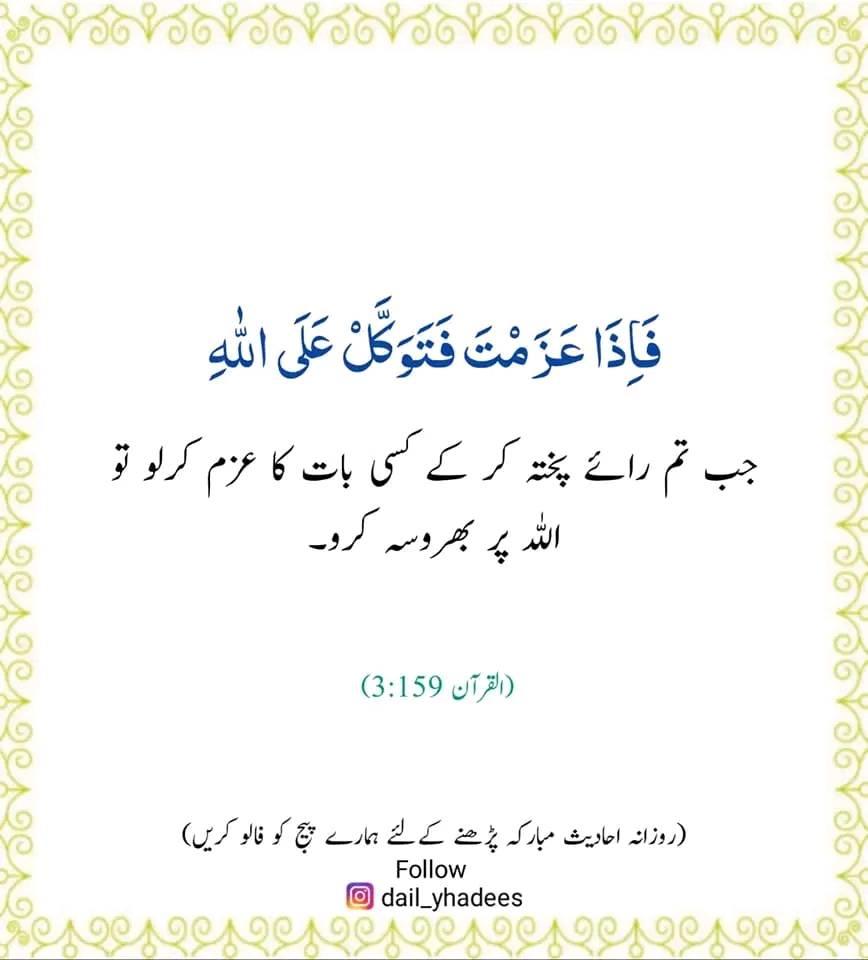 فَاِذَا عَزَمْتَ فَتَوَكَّلْ عَلَى اللّٰهِ
جب تم رائے پختہ کر کے کسی بات کا عزم کرلو تو
اللہ پر بھروسہ کرو۔
(القرآن 3:159)
(روزانہ احادیث مبارکہ پڑھنے کےلئے ہمارے پیج کو فالو کریں)
Follow
dail_yhadees